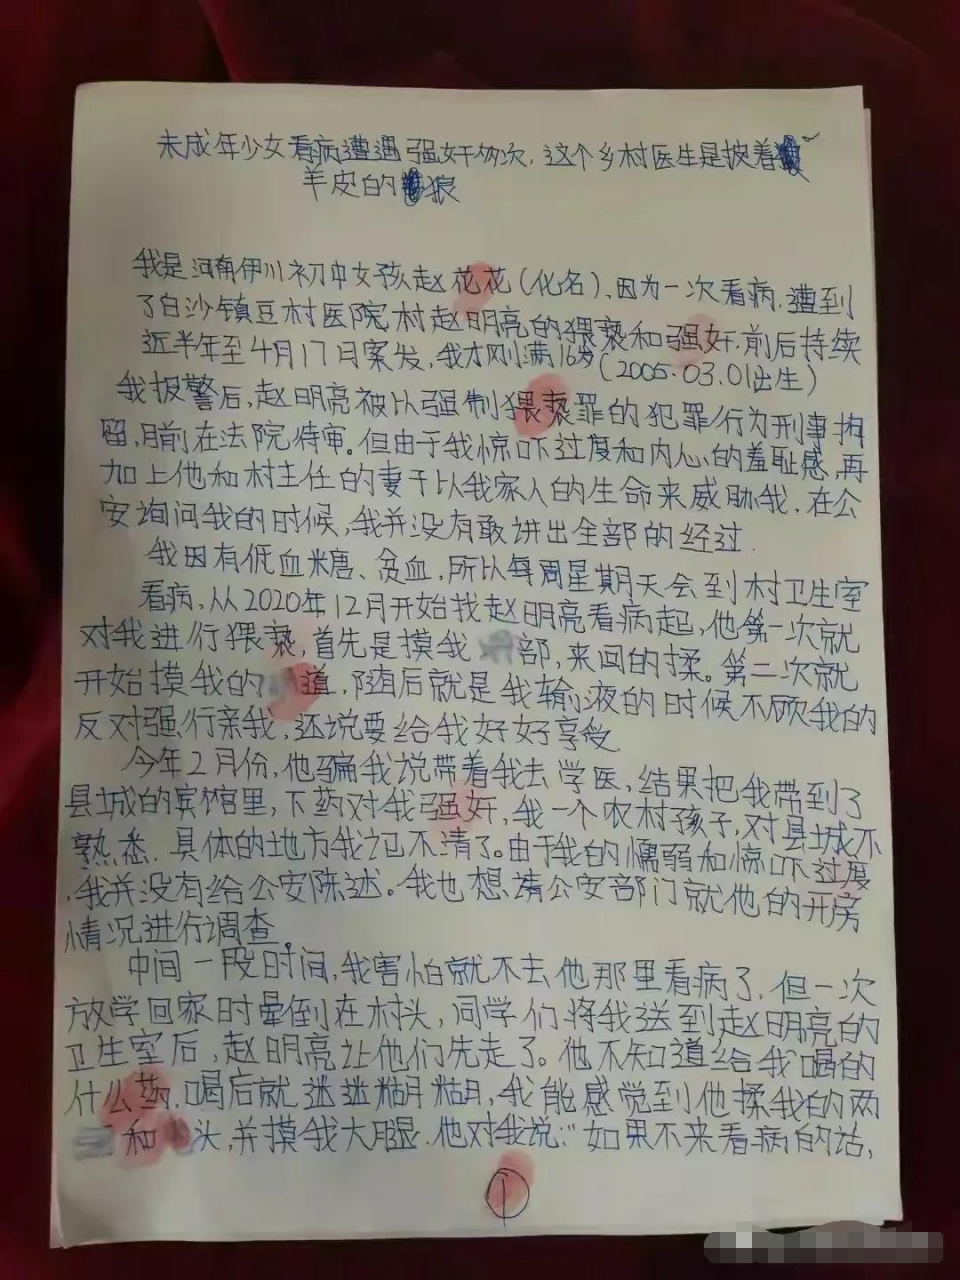 未成年少女看病遭遇强奸多次,这个乡村医生是披着
羊皮的狼
我是河南伊川初中女孩赵花花(化名),因为一次看病,遭到
了白沙镇豆村医院村赵明亮的猥亵和强奸.前后持续
近半年至4月17日案发,我才刚满16岁(2005.03.01出生)
我报警后,赵明亮被以强制猥亵罪的犯罪行为刑事拘
留,目前在法院待审。但由于我惊吓过度和内心的羞耻感,再
加上他和村主任的妻子以我家人的生命来威胁我,在公
安询问我的时候,我并没有敢讲出全部的经过.
我因有低血糖、贫血,所以每周星期天会到村卫生室
看病,从2020年12月开始找赵明亮看病起,他第一次就
对我进行猥亵,首先是摸我部,来回的揉。第二次就
开始摸我的道,随后就是我输液的时候不顾我的
反对强行亲我,还说要给我好好享受
今年2月份,他骗我说带着我去学医,结果把我带到了
县城的宾馆里,下药对我强奸,我一个农村孩子,对县城不
熟悉.具体的地方我记不清了。由于我的懦弱和惊吓过度
,我并没有给公安陈述。我也想请公安部门就他的开房
情况进行调查。
中间一段时间,我害怕就不去他那里看病了,但一次
放学回家时晕倒在村头,同学们将我送到赵明亮的
卫生室后,赵明亮让他们先走了。他不知道给我喝的
什么药,喝后就迷迷糊糊,我能感觉到他揉我的两
和头,并摸我大腿.他对我说:"如果不来看病的话,
1